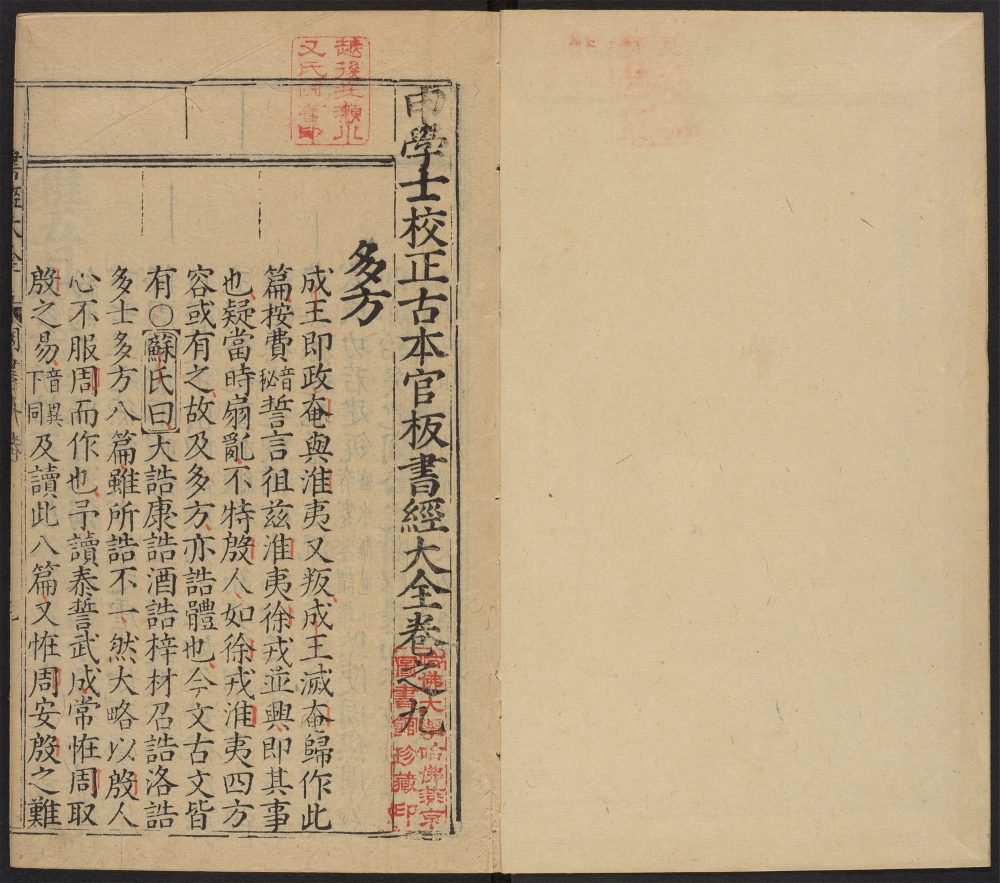 申學士校正古本官板書經大全卷之九
多方
成王即政奄與淮夷又叛成王滅奄歸作此
篇按費音秘誓言徂兹淮夷徐戎並興即其事
也疑當時扇亂不特殷人如徐戎淮夷四方
容或有之故及多方亦誥體也今文古文皆
有○蘇氏曰大誥康誥酒誥梓材召誥洛誥
多士多方八篇雖所誥不一然大略以殷人
心不服周而作也予讀泰誓武成常恠周取
殷之易音異下同及讀此八篇又恠周安殷之難
書經大全
哈佛大學哈佛燕京
圖書館珍藏印